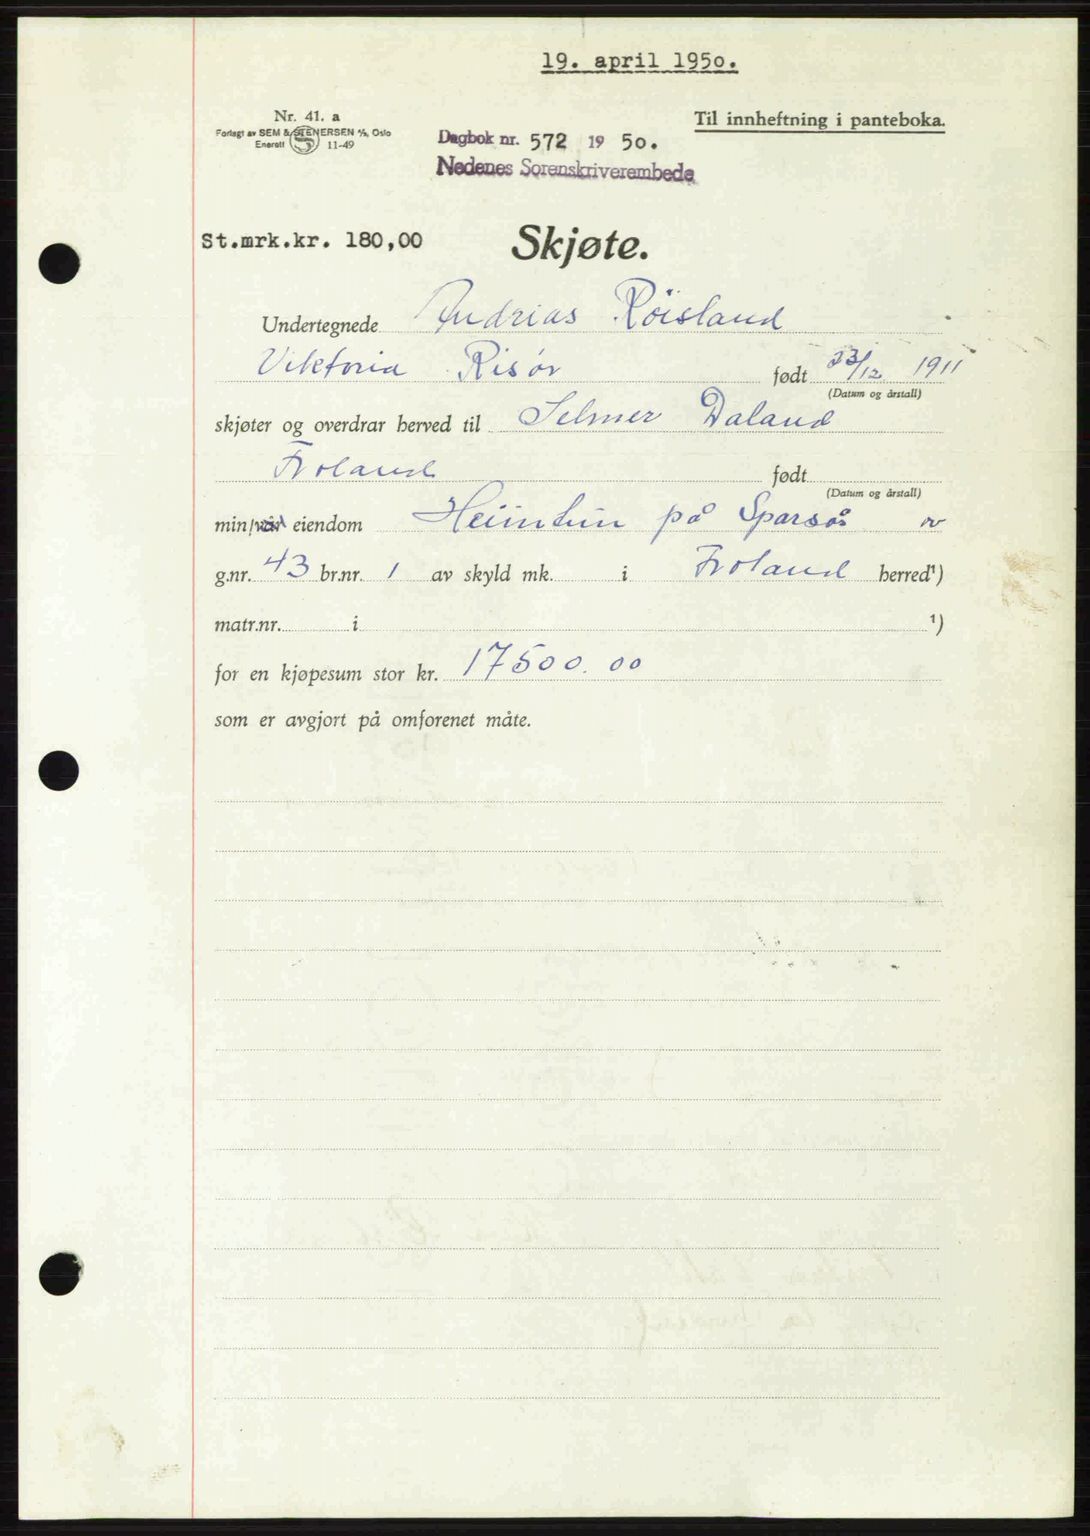 19. april 1950.
Nr. 41. a
Forlagt av SEM & STENERSEN A/S, Oslo
Enerett 11-49
Til innheftning i panteboka.
Dagbok nr. 572 19 50.
Nedenes Sorenskriverembede
St.mrk.kr. 180,00
Skjøte.
Undertegnede Andrias Röisland
Viktoria Risör født 23/12 1911
(Datum og årstall)
skjøter og overdrar herved til Selmer Daland
Froland født
(Datum og årstall)
min/vår eiendom Heimtun på Sparsås av
g.nr. 43 br.nr. 1 av skyld mk. i Froland herred¹)
matr.nr. i ¹)
for en kjøpesum stor kr. 17500.00
som er avgjort på omforenet måte.